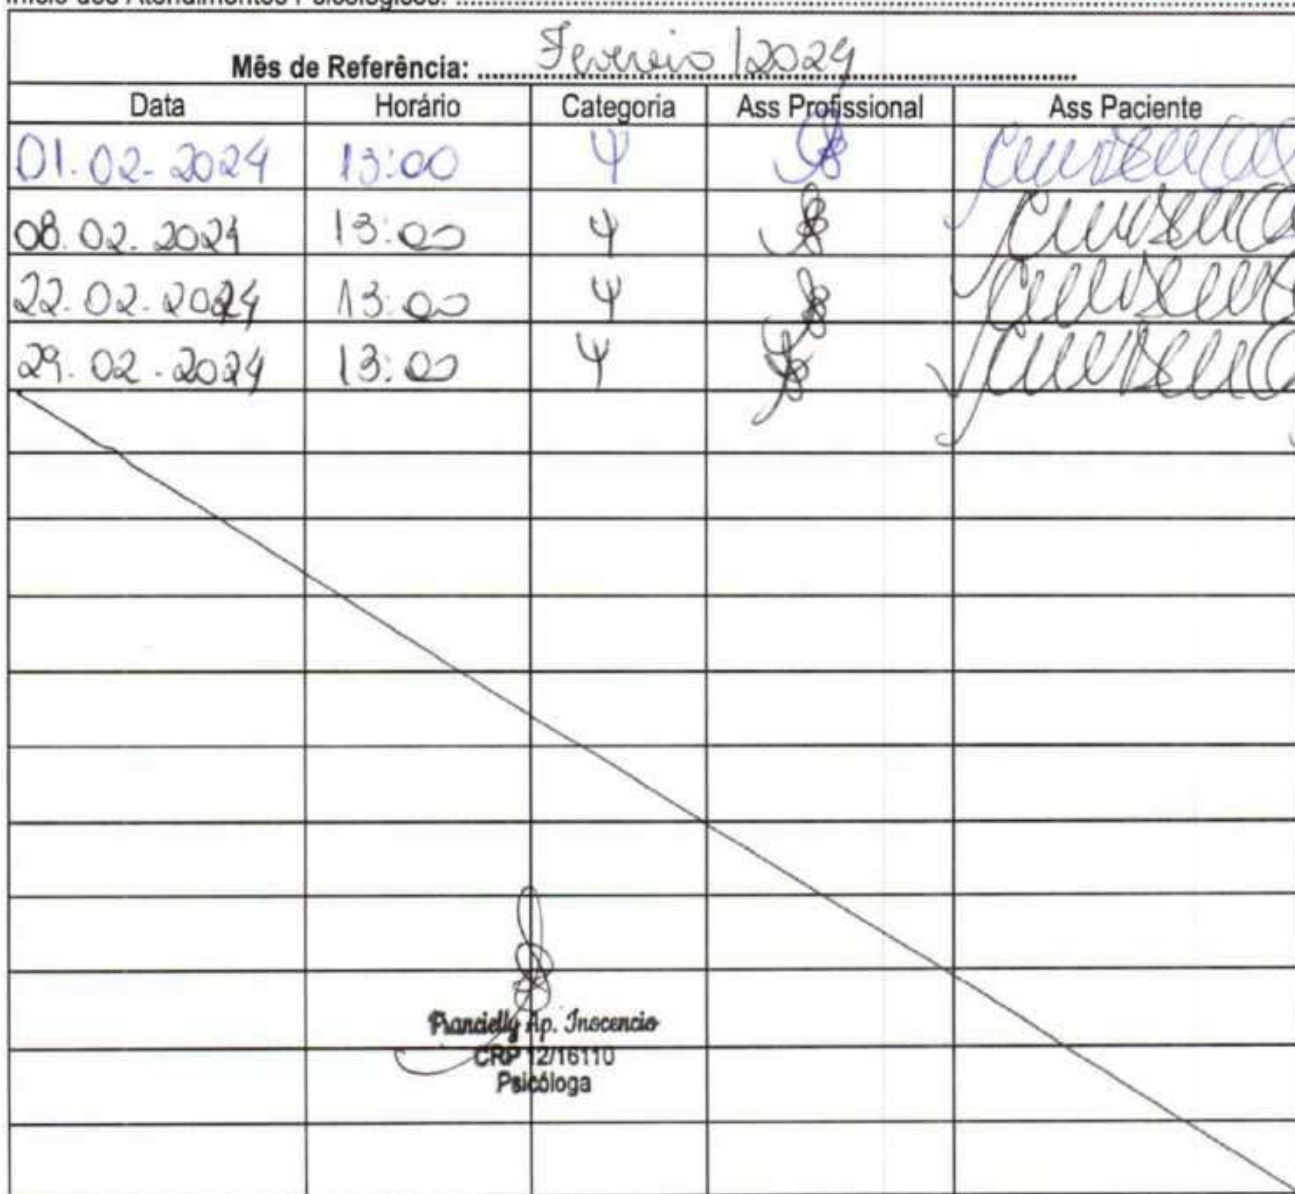 Início dos Atendimentos Psicológicos: ........................
Mês de Referência: Fevereiro/2024
Data Horário Categoria Ass Profissional Ass Paciente
01.02-2024 13:00 Ψ
08.02.2024 13:00 Ψ
22.02.2024 13:00 Ψ
29.02.2024 13:00 Ψ
Francielly Ap. Inocencio
CRP 12/16110
Psicóloga